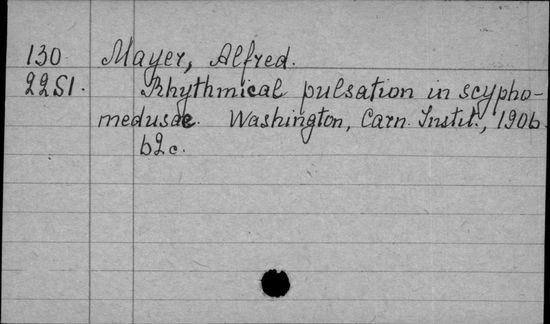 130 Mayer, Alfred.
22S1. Rhythmical pulsation in scypho-
medusae. Washington, Carn. Instit., 1906
62c.